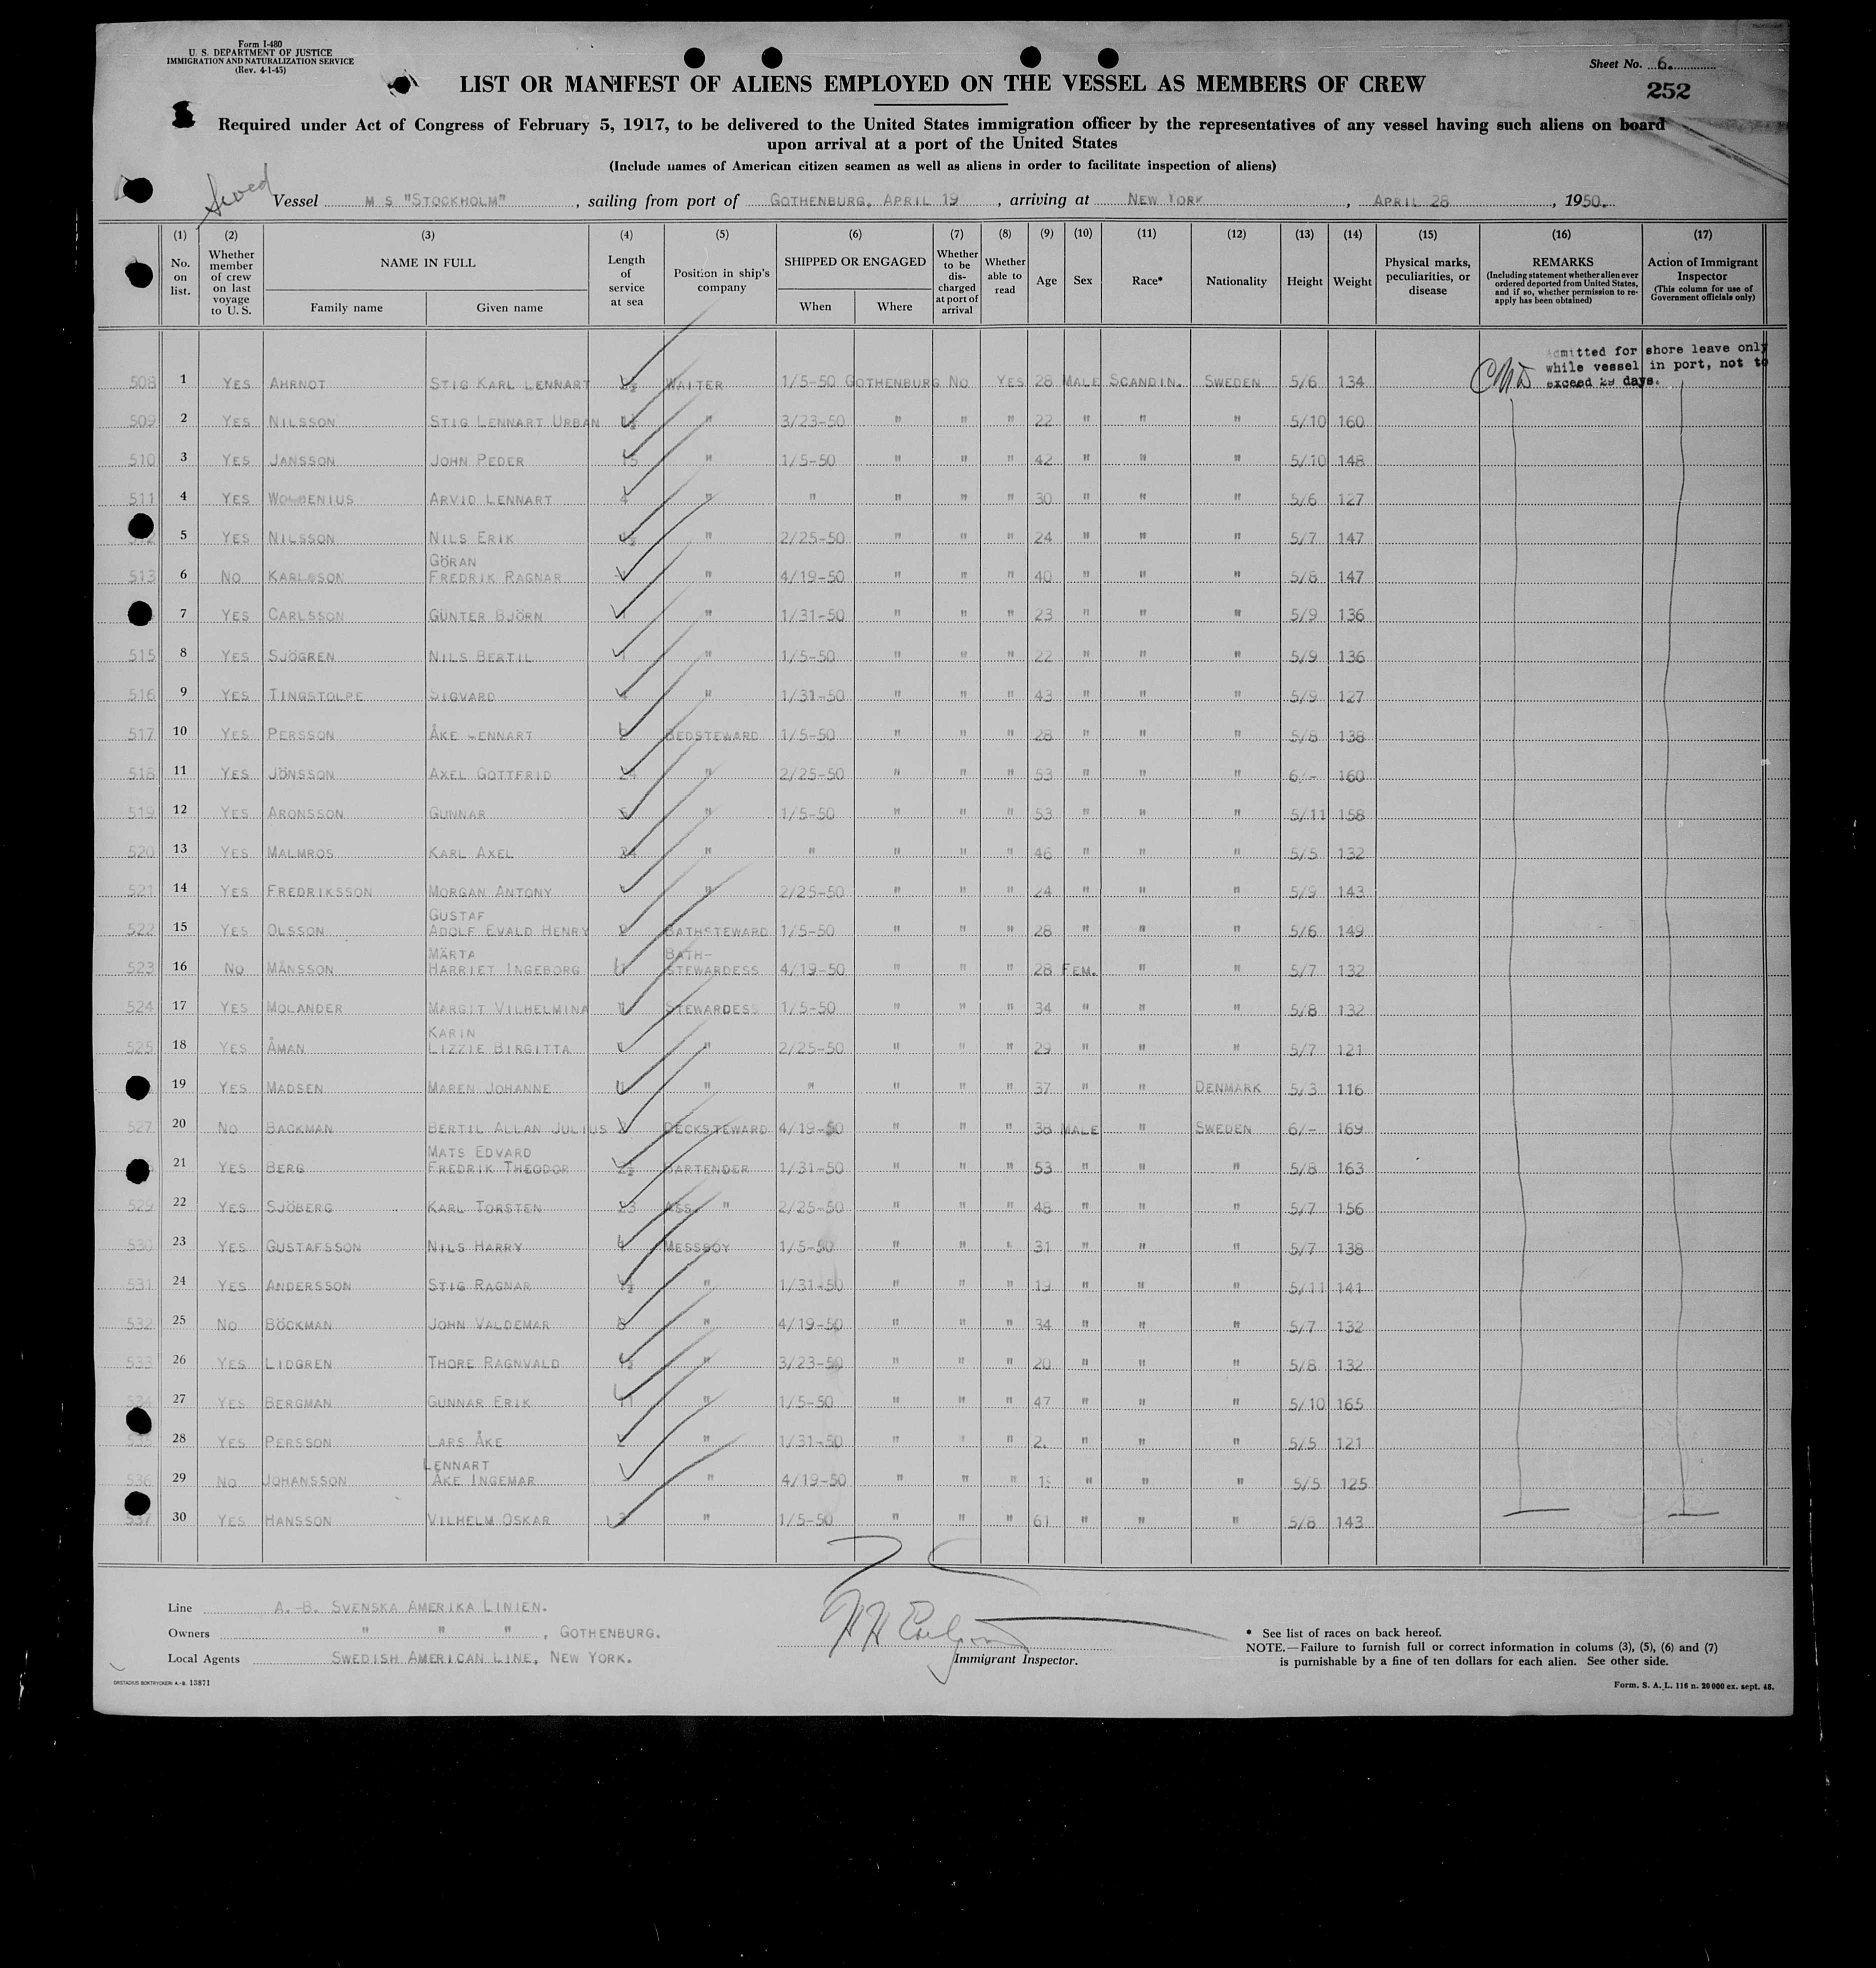 Form I-480
U. S. DEPARTMENT OF JUSTICE
IMMIGRATION AND NATURALIZATION SERVICE
(Rev. 4-1-45)
Sheet No. 6.
252
LIST OR MANIFEST OF ALIENS EMPLOYED ON THE VESSEL AS MEMBERS OF CREW
Required under Act of Congress of February 5, 1917, to be delivered to the United States immigration officer by the representatives of any vessel having such aliens on board
upon arrival at a port of the United States
(Include names of American citizen seamen as well as aliens in order to facilitate inspection of aliens)
Vessel M S "STOCKHOLM", sailing from port of GOTHENBURG, APRIL 19, arriving at NEW YORK, APRIL 28, 1950.
(1) No. on list. (2) Whether member of crew on last voyage to U. S. (3) NAME IN FULL Family name Given name (4) Length of service at sea (5) Position in ship's company (6) SHIPPED OR ENGAGED When Where (7) Whether to be discharged at port of arrival (8) Whether able to read (9) Age (10) Sex (11) Race* (12) Nationality (13) Height (14) Weight (15) Physical marks, peculiarities, or disease (16) REMARKS (Including statement whether alien ever ordered deported from United States, and if so, whether permission to reapply has been obtained) (17) Action of Immigrant Inspector (This column for use of Government officials only)
Admitted for shore leave only
while vessel in port, not to
exceed 29 days.
508 1 YES AHRNOT STIG KARL LENNART WAITER 1/5-50 GOTHENBURG NO YES 28 MALE SCANDIN. SWEDEN 5/6 134
509 2 YES NILSSON STIG LENNART URBAN " 3/23-50 " " " 22 " " " 5/10 160
510 3 YES JANSSON JOHN PEDER 15 " 1/5-50 " " " 42 " " " 5/10 148
511 4 YES ARVID LENNART 4 " " " " " 30 " " " 5/6 127
5 YES NILSSON NILS ERIK " 2/25-50 " " " 24 " " " 5/7 147
513 6 NO KARLSSON GÖRAN
FREDRIK RAGNAR " 4/19-50 " " " 40 " " " 5/8 147
7 YES CARLSSON GÜNTER BJÖRN " 1/31-50 " " " 23 " " " 5/9 136
515 8 YES SJÖGREN NILS BERTIL " 1/5-50 " " " 22 " " " 5/9 136
516 9 YES TINGSTOLPE SIGVARD " 1/31-50 " " " 43 " " " 5/9 127
517 10 YES PERSSON ÅKE LENNART BEDSTEWARD 1/5-50 " " " 28 " " " 5/8 138
518 11 YES JÖNSSON AXEL GOTTFRID 24 " 2/25-50 " " " 53 " " " 6/- 160
519 12 YES ARONSSON GUNNAR " 1/5-50 " " " 53 " " " 5/11 158
520 13 YES MALMROS KARL AXEL " " " " " 46 " " " 5/5 132
521 14 YES FREDRIKSSON MORGAN ANTONY " 2/25-50 " " " 24 " " " 5/9 143
522 15 YES OLSSON GUSTAF
ADOLF EVALD HENRY BATHSTEWARD 1/5-50 " " " 28 " " " 5/6 149
523 16 NO MÅNSSON MÄRTA
HARRIET INGEBORG BATH-
STEWARDESS 4/19-50 " " " 28 FEM. " " 5/7 132
524 17 YES MOLANDER MARGIT VILHELMINA STEWARDESS 1/5-50 " " " 34 " " " 5/8 132
525 18 YES ÅMAN KARIN
LIZZIE BIRGITTA " 2/25-50 " " " 29 " " " 5/7 121
19 YES MADSEN MAREN JOHANNE " " " " " 37 " " DENMARK 5/3 116
527 20 NO BACKMAN BERTIL ALLAN JULIUS DECKSTEWARD 4/19-50 " " " 38 MALE " SWEDEN 6/- 169
21 YES BERG MATS EDVARD
FREDRIK THEODOR BARTENDER 1/31-50 " " " 53 " " " 5/8 163
529 22 YES SJÖBERG KARL TORSTEN 23 ASS. " 2/25-50 " " " 48 " " " 5/7 156
530 23 YES GUSTAFSSON NILS HARRY MESSBOY 1/5-50 " " " 31 " " " 5/7 138
531 24 YES ANDERSSON STIG RAGNAR " 1/31-50 " " " 19 " " " 5/11 141
532 25 NO BÖCKMAN JOHN VALDEMAR 8 " 4/19-50 " " " 34 " " " 5/7 132
533 26 YES LIDGREN THORE RAGNVALD " 3/23-50 " " " 20 " " " 5/8 132
534 27 YES BERGMAN GUNNAR ERIK 11 " 1/5-50 " " " 47 " " " 5/10 165
535 28 YES PERSSON LARS ÅKE " 1/31-50 " " " " " " 5/5 121
536 29 NO JOHANSSON LENNART
ÅKE INGEMAR " 4/19-50 " " " " " " 5/5 125
537 30 YES HANSSON VILHELM OSKAR " 1/5-50 " " " 61 " " " 5/8 143
Line A.-B. SVENSKA AMERIKA LINIEN.
Owners " " ", GOTHENBURG.
Local Agents SWEDISH AMERICAN LINE, NEW YORK.
Immigrant Inspector.
* See list of races on back hereof.
NOTE.—Failure to furnish full or correct information in colums (3), (5), (6) and (7)
is punishable by a fine of ten dollars for each alien. See other side.
ORSTADIUS BOKTRYCKERI A.-B. 13871
Form. S. A. L. 116 n. 20 000 ex. sept. 48.